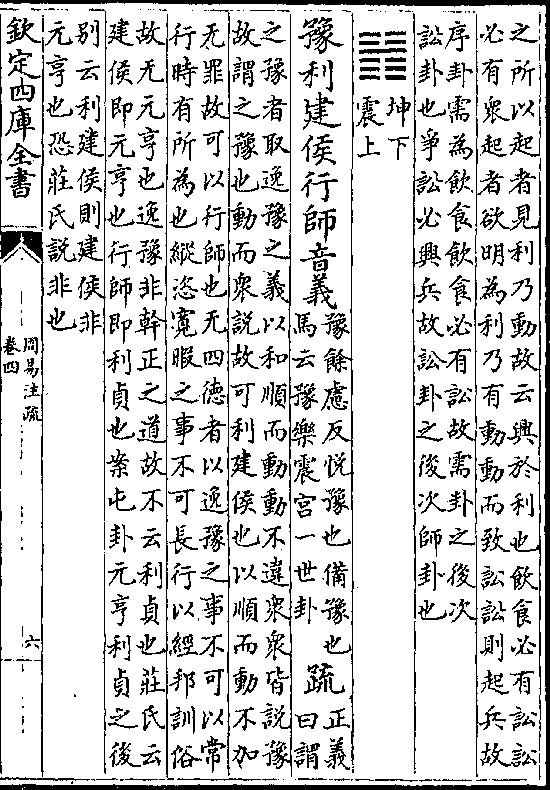 之所以起者見利乃動故云興於利也飲食必有訟訟
必有衆起者欲明為利乃有動動而致訟訟則起兵故
序卦需為飲食飲食必有訟故需卦之後次
訟卦也爭訟必興兵故訟卦之後次師卦也
坤下
震上
豫利建侯行師音義
豫餘慮反悦豫也備豫也
馬云豫樂震宮一世卦
疏
正義
曰謂
之豫者取逸豫之義以和順而動動不違衆衆皆説豫
故謂之豫也動而衆説故可利建侯也以順而動不加
无罪故可以行師也无四德者以逸豫之事不可以常
行時有所為也縱恣寬暇之事不可長行以經邦訓俗
故无元亨也逸豫非幹正之道故不云利貞也莊氏云
建侯即元亨也行師即利貞也案屯卦元亨利貞之後
别云利建侯則建侯非
元亨也恐莊氏説非也
欽定四庫全書
周易注疏
卷四
六